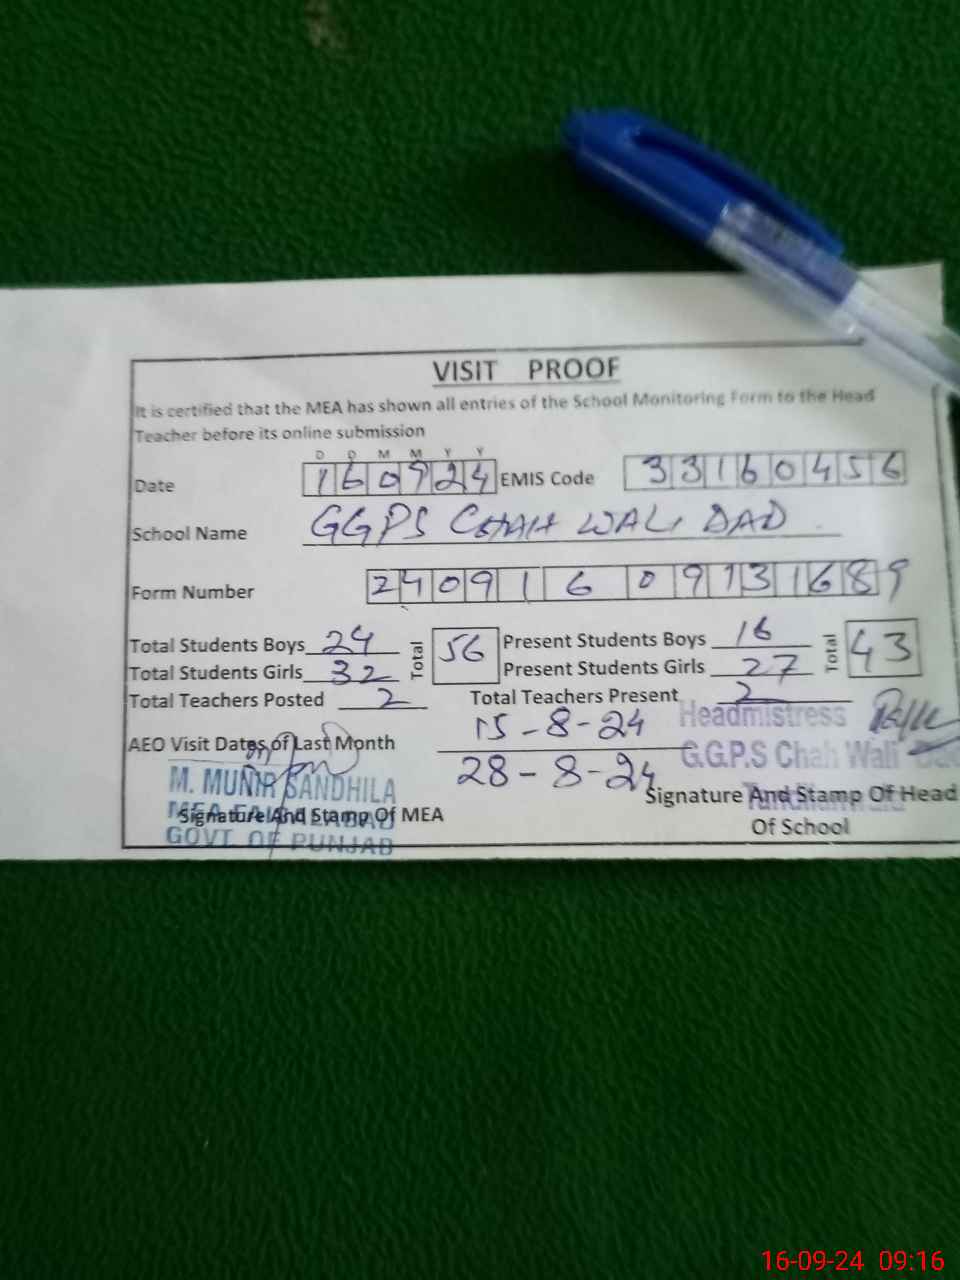 VISIT PROOF
It is certified that the MEA has shown all entries of the School Monitoring Form to the Head
Teacher before its online submission
D D M M Y Y
Date 160924 EMIS Code 33160456
School Name GGPS CHAH WALI DAD
Form Number 24091609131689
Total Students Boys 24 Total 56 Present Students Boys 16 Total 43
Total Students Girls 32 Present Students Girls 27
Total Teachers Posted 2 Total Teachers Present 2
AEO Visit Dates of Last Month 15-8-24
28-8-24
Headmistress
G.G.P.S Chah Wali Dad
M. MUNIR SANDHILA
MEA FAISALABAD
GOVT OF PUNJAB
Signature And Stamp Of MEA
Signature And Stamp Of Head
Of School
16-09-24 09:16